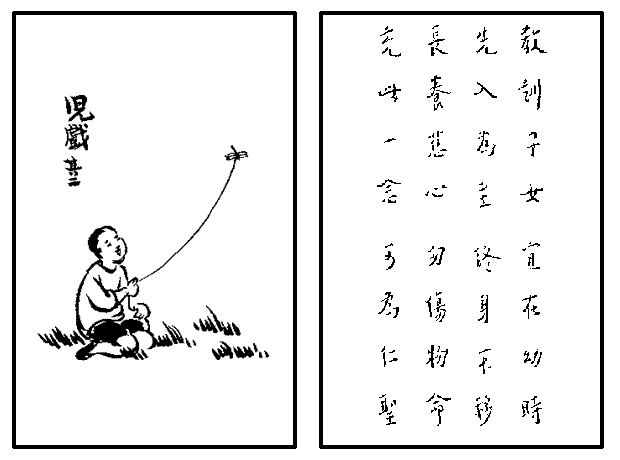 兒戲 其二
教訓子女 宜在幼時
先入為主 終身不移
長養慈心 勿傷物命
充此一念 可為仁聖